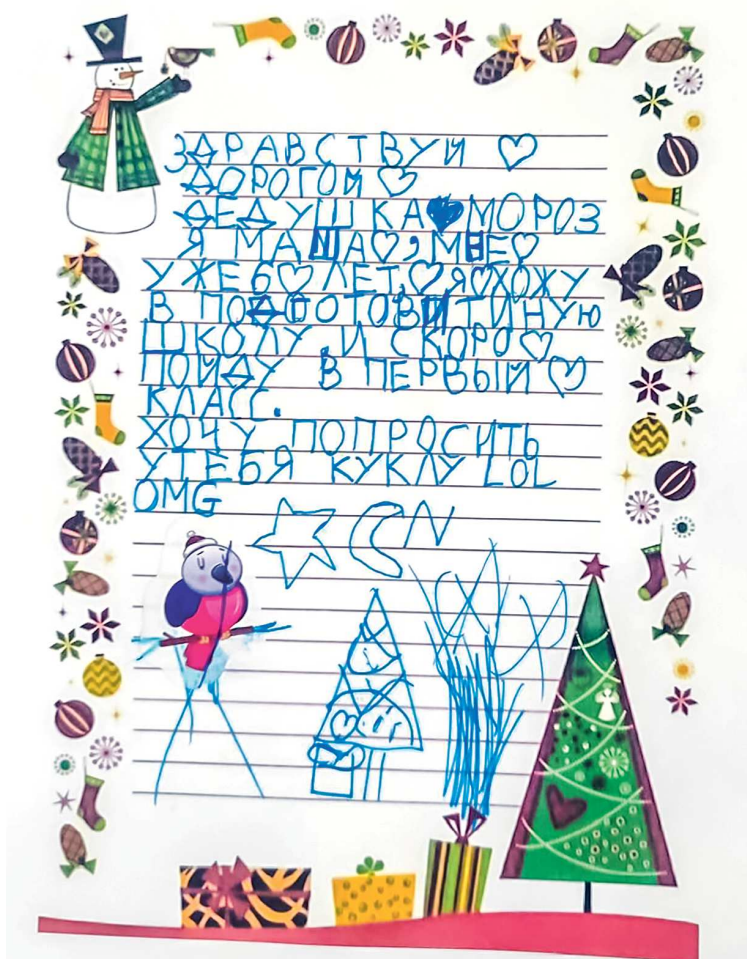 ЗДРАВСТВУЙ
ДОРОГОЙ
ДЕДУШКА МОРОЗ
Я МАША, МНЕ
УЖЕ 6 ЛЕТ. Я ХОЖУ
В ПОДГОТОВИТИНУЮ
ШКОЛУ. И СКОРО
ПОЙДУ В ПЕРВЫЙ
КЛАСС.
ХОЧУ ПОПРОСИТЬ
У ТЕБЯ КУКЛУ LOL
OMG